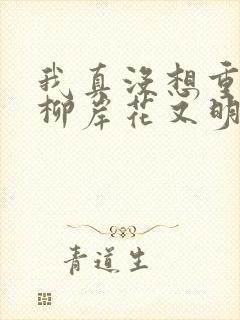 我真没想重
柳岸花又明
青道生